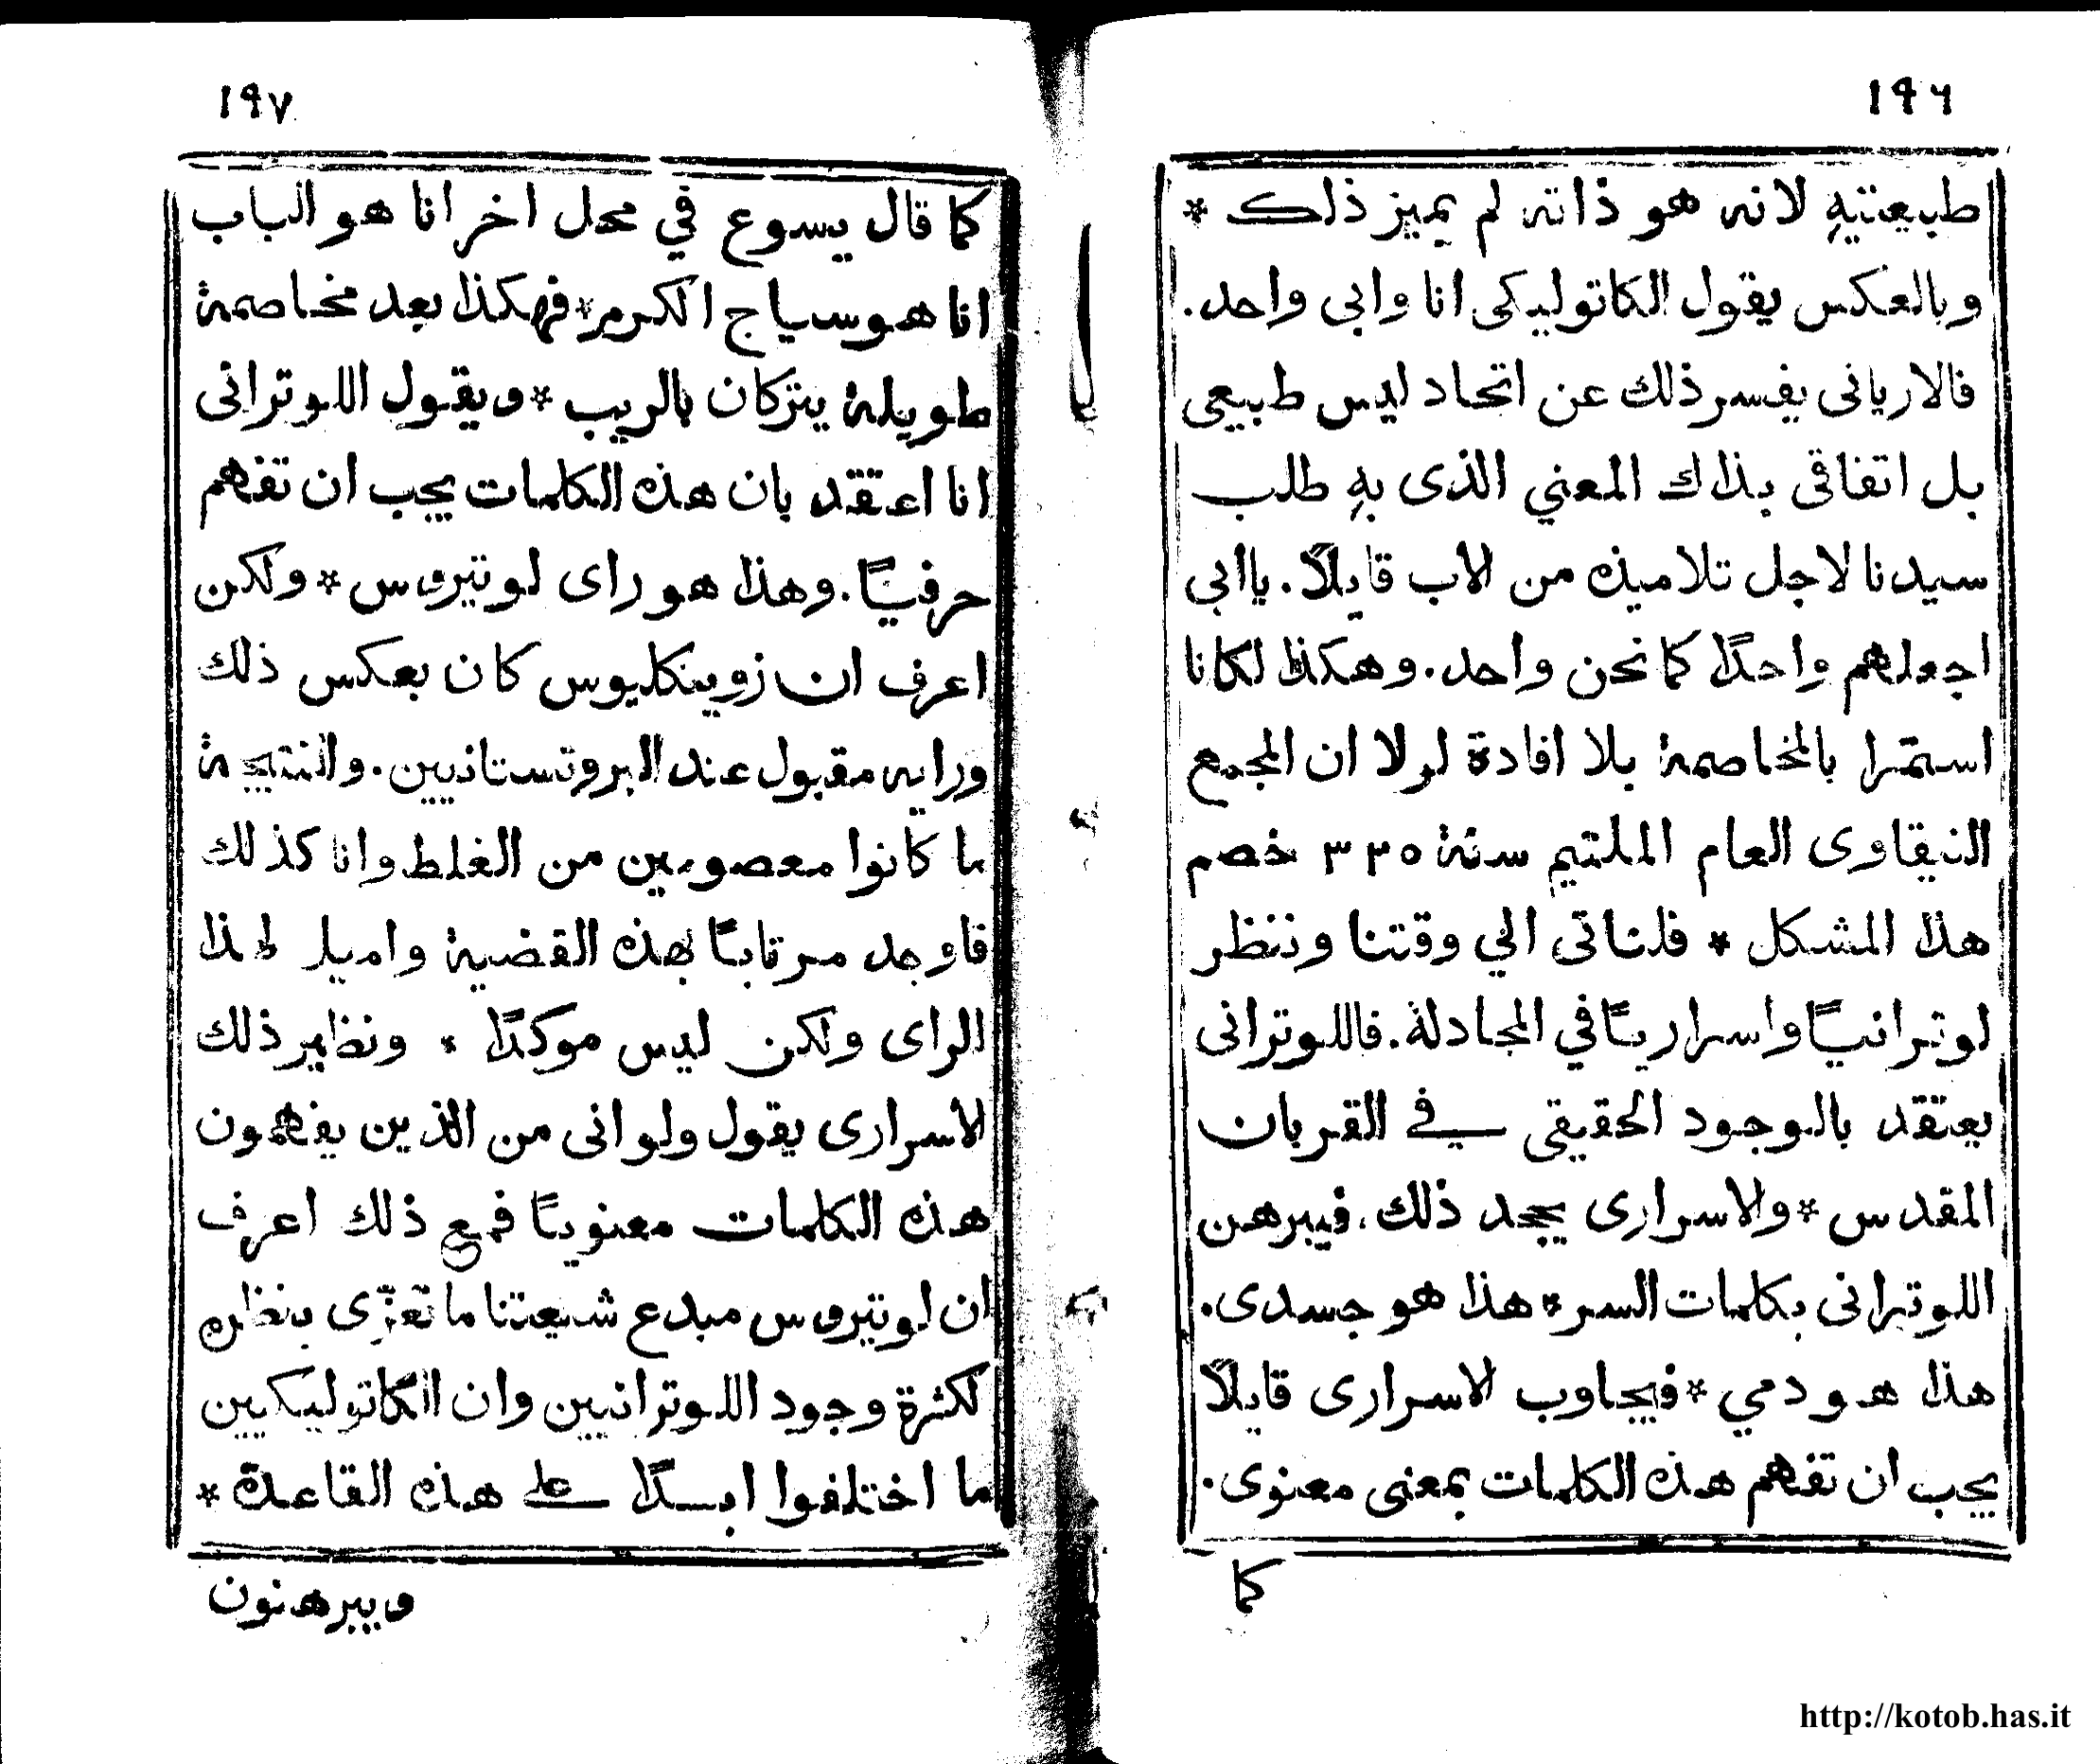 ١٩٦
طبيعتيهِ لانه هو ذاته لم يميز ذلك *
وبالعكس يقول الكاتوليكى انا وابى واحد.
فالاريانى يفسر ذلك عن اتحاد ليس طبيعى
بل اتفاقى بذلك المعني الذى بهِ طلب
سيدنا لاجل تلاميذه من الاب قايلاً. ياابى
اجعلهم واحدًا كما نحن واحد. وهكذا لكانا
استمرا بالمخاصمة بلا افادة لولا ان المجمع
النيقاوى العام الملتيم سنة ٣٢٥ خصم
هذا المشكل * فلناتى الي وقتنا وننظر
لوترانيًا واسراريًا في المجادلة. فاللوترانى
يعتقد بالوجود الحقيقى في القربان
المقدس * والاسرارى يجحد ذلك. فيبرهن
اللوترانى بكلمات السر * هذا هو جسدى.
هذا هو دمي * فيجاوب الاسرارى قايلاً
يجب ان تفهم هذه الكلمات بمعنى معنوى.
كما
١٩٧
كما قال يسوع في محل اخر انا هو الباب
انا هو سياج الكرم * فهكذا بعد مخاصمة
طويلة يتركان بالريب * ويقول اللوترانى
انا اعتقد بان هذه الكلمات يجب ان تفهم
حرفيًا. وهذا هو راى لوتيروس * ولكن
اعرف ان زوينكليوس كان بعكس ذلك
ورايه مقبول عند البروتستانيين. والنتيجة
ما كانوا معصومين من الغلط وانا كذلك
فاوجد مرتابًا بهذه القضية واميل لهذا
الراى ولكن ليس موكدًا * ونظير ذلك
الاسرارى يقول ولوانى من الذين يفهمون
هذه الكلمات معنويًا فمع ذلك اعرف
ان لوتيروس مبدع شيعتنا ما تعزّى بنظره
لكثرة وجود اللوترانيين وان الكاتوليكيين
ما اختلفوا ابدًا على هذه القاعدة *
ويبرهنون
http://kotob.has.it